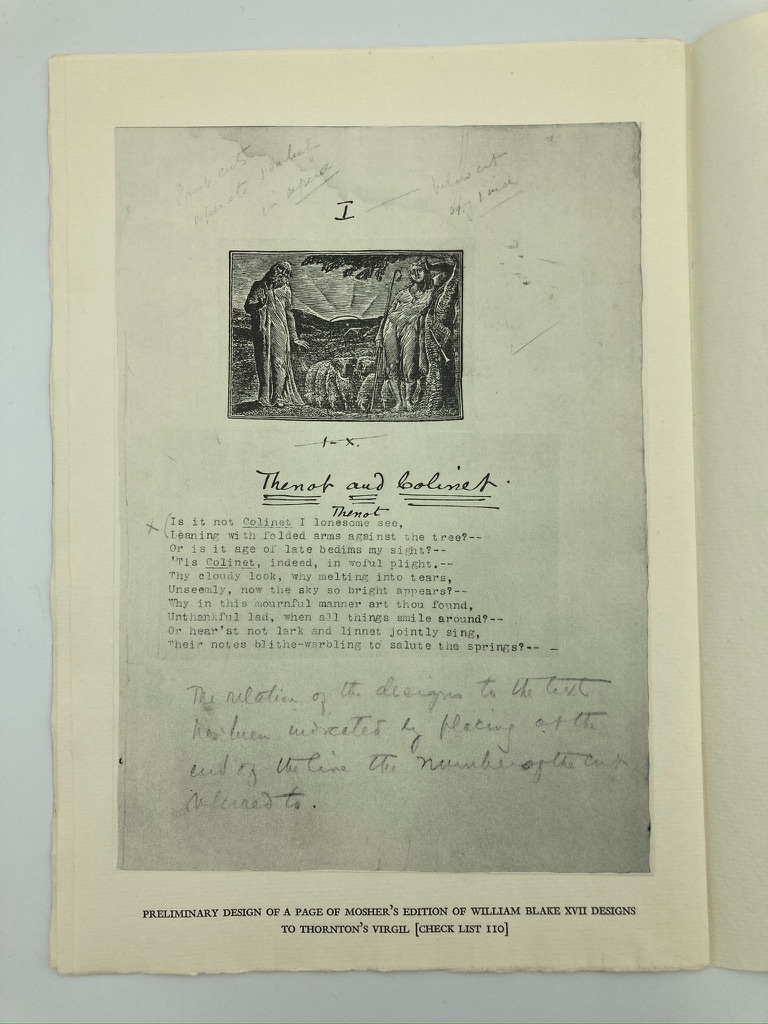 separate
in
below cut
1 inch
I
1-X.
Thenot and Colinet.
Thenot
x (Is it not Colinet I lonesome see,
Leaning with folded arms against the tree?--
Or is it age of late bedims my sight?--
'Tis Colinet, indeed, in woful plight.--
Thy cloudy look, why melting into tears,
Unseemly, now the sky so bright appears?--
Why in this mournful manner art thou found,
Unthankful lad, when all things smile around?--
Or hear'st not lark and linnet jointly sing,
Their notes blithe-warbling to salute the springs?-- –
The relation of the designs to the text
has been indicated by placing at the
end of the line the number of the cut
referred to.
PRELIMINARY DESIGN OF A PAGE OF MOSHER'S EDITION OF WILLIAM BLAKE XVII DESIGNS
TO THORNTON'S VIRGIL [CHECK LIST 110]